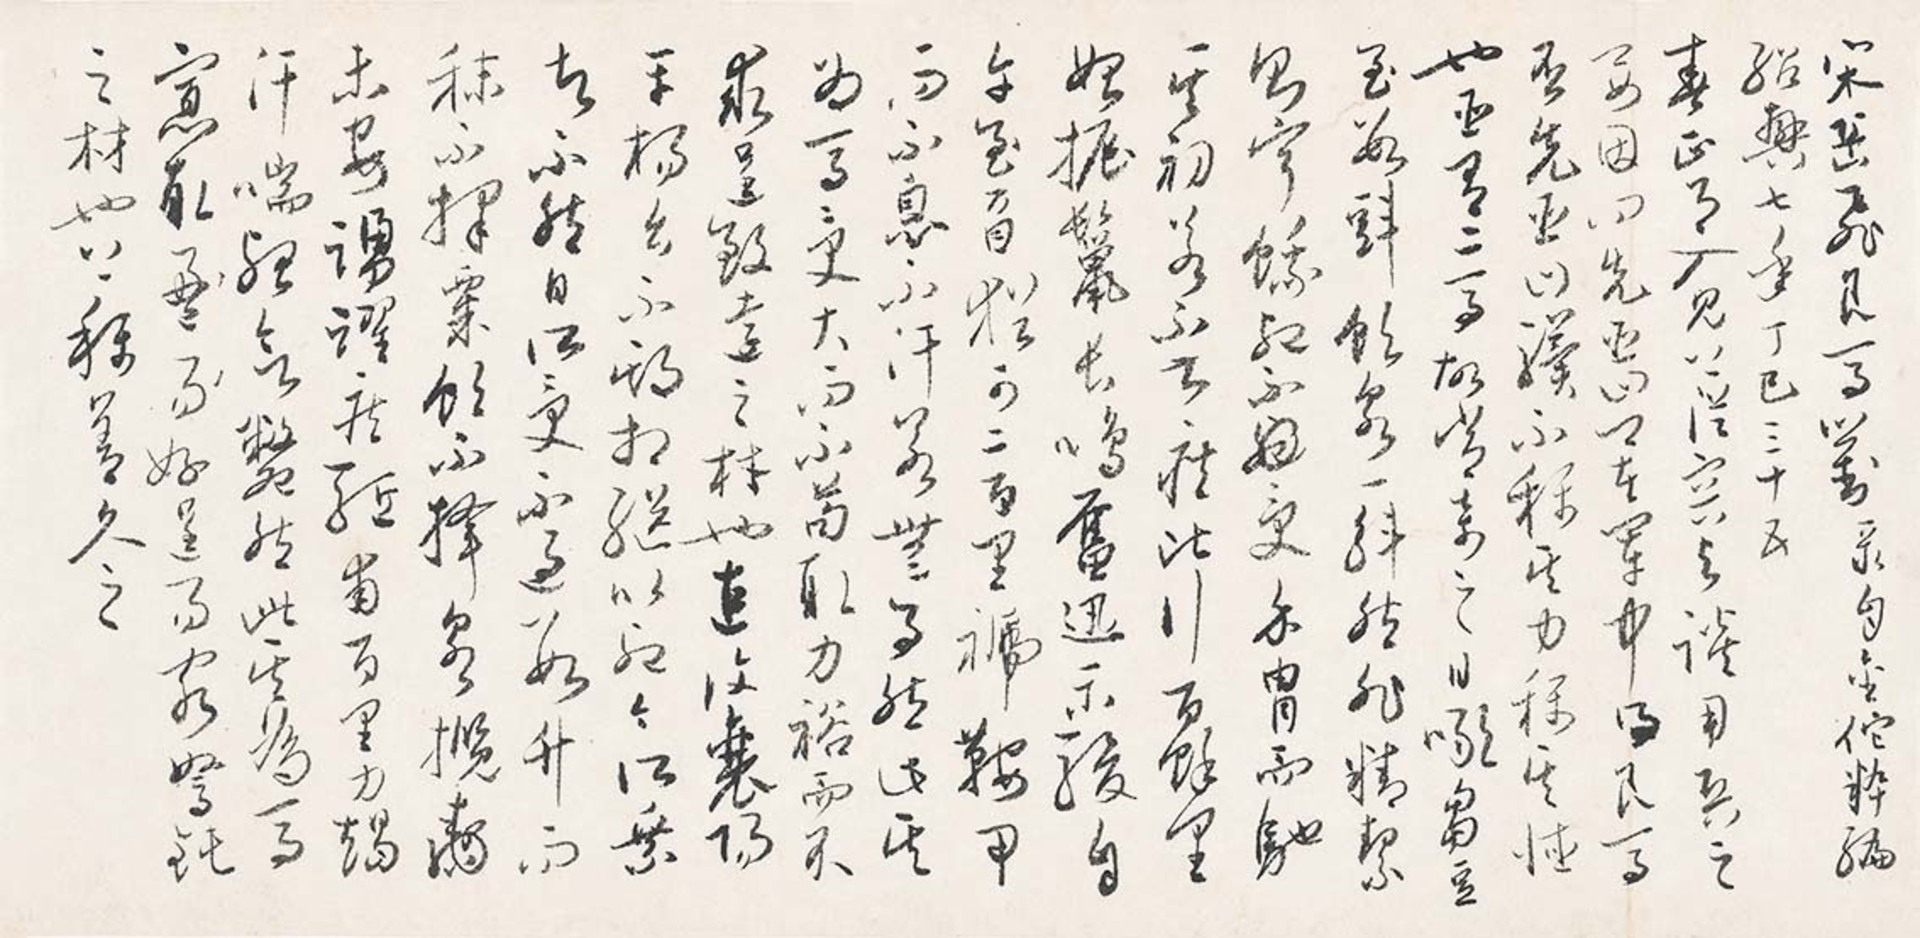 宋岳飛良馬對 录自金佗粹編
紹興七年丁巳三十五
春正月入見上從容與談用兵之
要因問先臣曰卿在軍中得良馬
否先臣曰驥不稱其力稱其德
也臣有二馬故常奇之日噉芻豆
至數斗飲泉一斛然非精潔
則寧餓死不受介冑而馳
其初若不甚疾比行百餘里
始振鬣長鳴奮迅示駿自
午至酉猶可二百里褫鞍甲
而不息不汗若無事然此其
為馬受大而不苟取力裕而不
求逞致遠之材也值復襄陽
平楊么不幸相繼以死今所乘
者不然日所受不過數升而
秣不擇粟飲不擇泉攬轡
未安踴躍疾驅甫百里力竭
汗喘殆欲斃然此其為馬
寡取易盈好逞易窮駑鈍
之材也上稱善久之